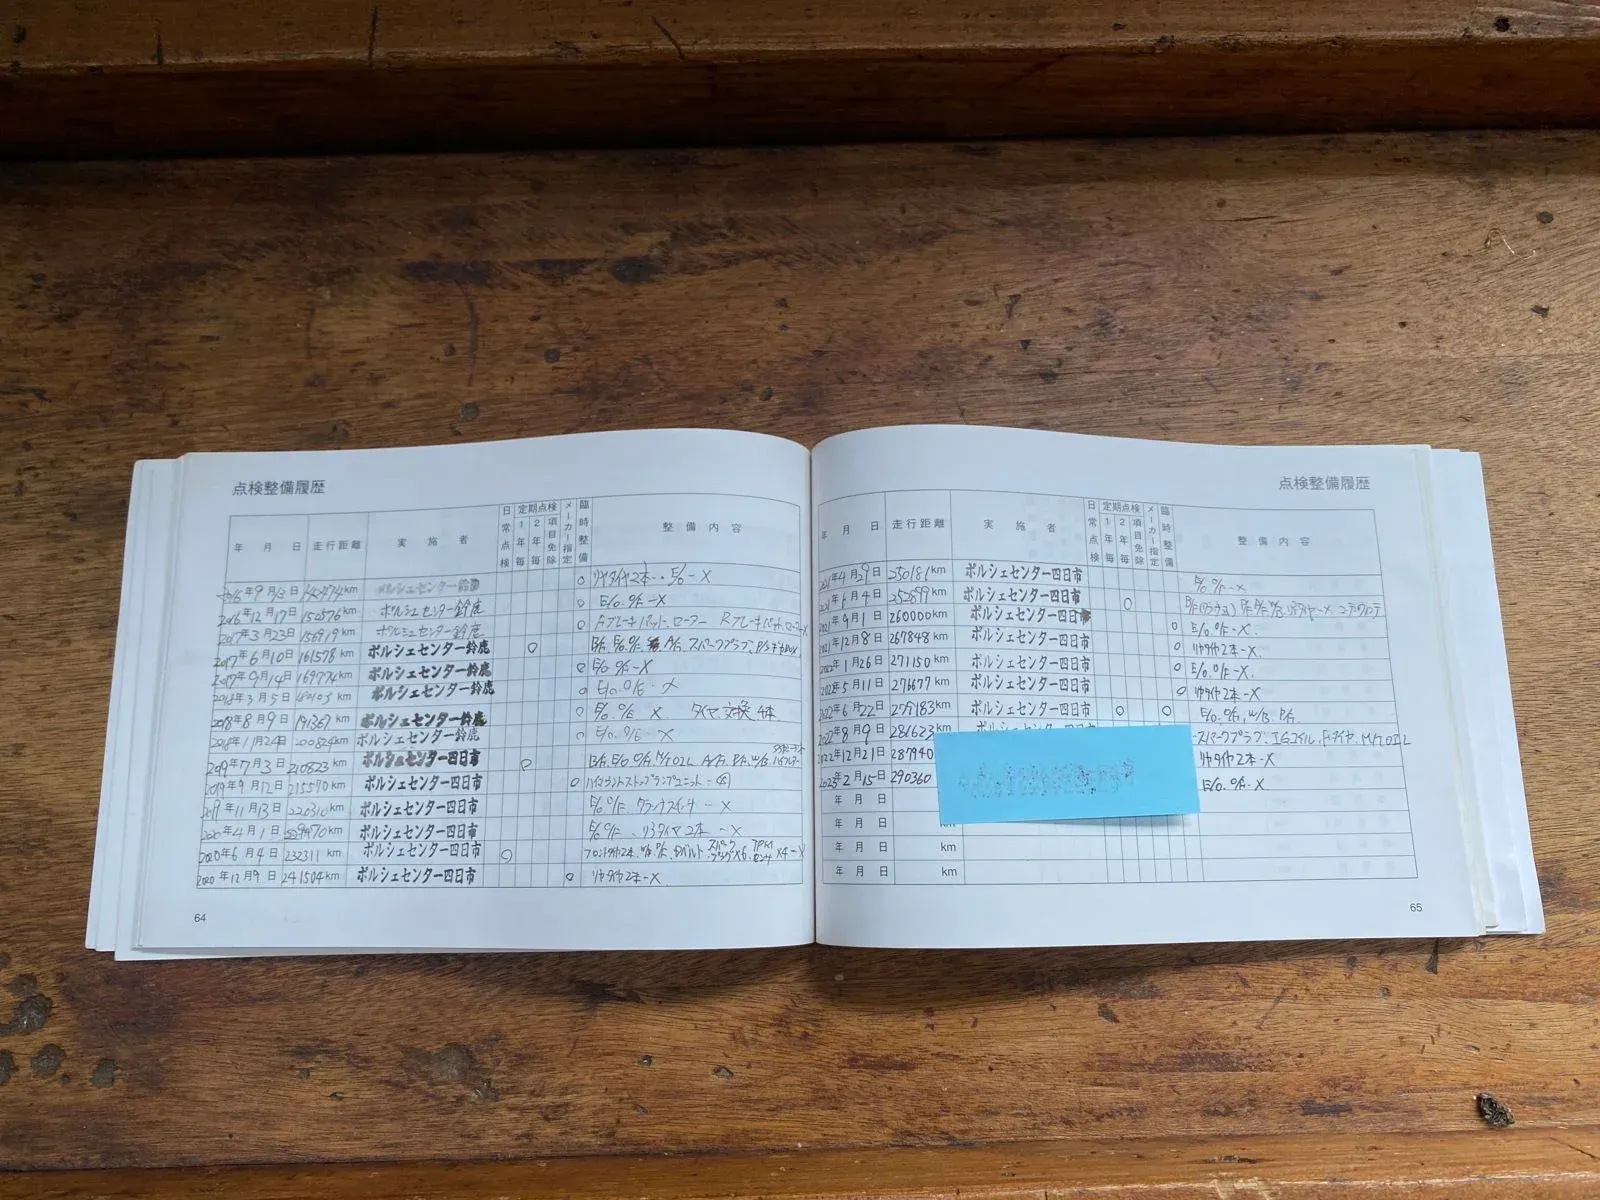 点検整備履歴
年 月 日 走行距離 実施者 日常点検 定期点検 1年毎 2年毎 項目免除 メーカー指定 臨時整備 整備内容
年9月13日 km ポルシェセンター鈴鹿 ○ リヤタイヤ2本 E/O-X
2016年12月17日 150576km ポルシェセンター鈴鹿 ○ E/O. O/F-X
2017年3月23日 156919km ポルシェセンター鈴鹿 ○ Fブレーキパット、ローター Rブレーキパット、ローターX
2017年6月10日 161578km ポルシェセンター鈴鹿 ○ B/F. E/O. O/F. A/F. スパークプラグ、
2017年9月14日 169774km ポルシェセンター鈴鹿 ○ E/O O/F-X
年3月5日 km ポルシェセンター鈴鹿 ○ E/O. O/E-X
2018年8月9日 191369km ポルシェセンター鈴鹿 ○ E/O. O/E X タイヤ交換 4本
月24日 200824km ポルシェセンター鈴鹿 ○ E/O. O/E-X
2019年7月3日 210823km ポルシェセンター四日市 ○ B/F. E/O O/F. M/TOIL A/F. P/F. W/B.
2019年9月12日 215570km ポルシェセンター四日市 ○ ハイマウントストップランプユニット
2019年11月13日 220310km ポルシェセンター四日市 E/O O/F. クラッチスイッチ-X
2020年4月1日 km ポルシェセンター四日市 E/O O/F、リヤタイヤ2本-X
2020年6月4日 232311km ポルシェセンター四日市 ○ フロントタイヤ2本、 O/F. Vベルト スパークプラグ×6、TPMセンサ×4-X
2020年12月9日 241504km ポルシェセンター四日市 ○ リヤタイヤ2本-X
64
点検整備履歴
年 月 日 走行距離 実施者 日常点検 定期点検 1年毎 2年毎 項目免除 メーカー指定 臨時整備 整備内容
2021年4月29日 250181km ポルシェセンター四日市 E/O. O/F-X
2021年6月4日 252899km ポルシェセンター四日市 ○
2021年9月1日 260000km ポルシェセンター四日市 ○ E/O. O/F-X
2021年12月8日 267848km ポルシェセンター四日市 ○ リヤタイヤ2本-X
2022年1月26日 271150km ポルシェセンター四日市 ○ E/O. O/F-X
2022年5月11日 276677km ポルシェセンター四日市 ○ リヤタイヤ2本-X
2022年6月22日 279183km ポルシェセンター四日市 ○ ○ E/O. O/F. W/B. P/F.
2022年8月9日 281623km スパークプラグ、IGコイル、Fタイヤ、M/TOIL
2022年12月21日 287940 リヤタイヤ2本-X
2023年2月15日 290360 E/O. O/F-X
年 月 日
年 月 日 km
年 月 日 km
年 月 日 km
65